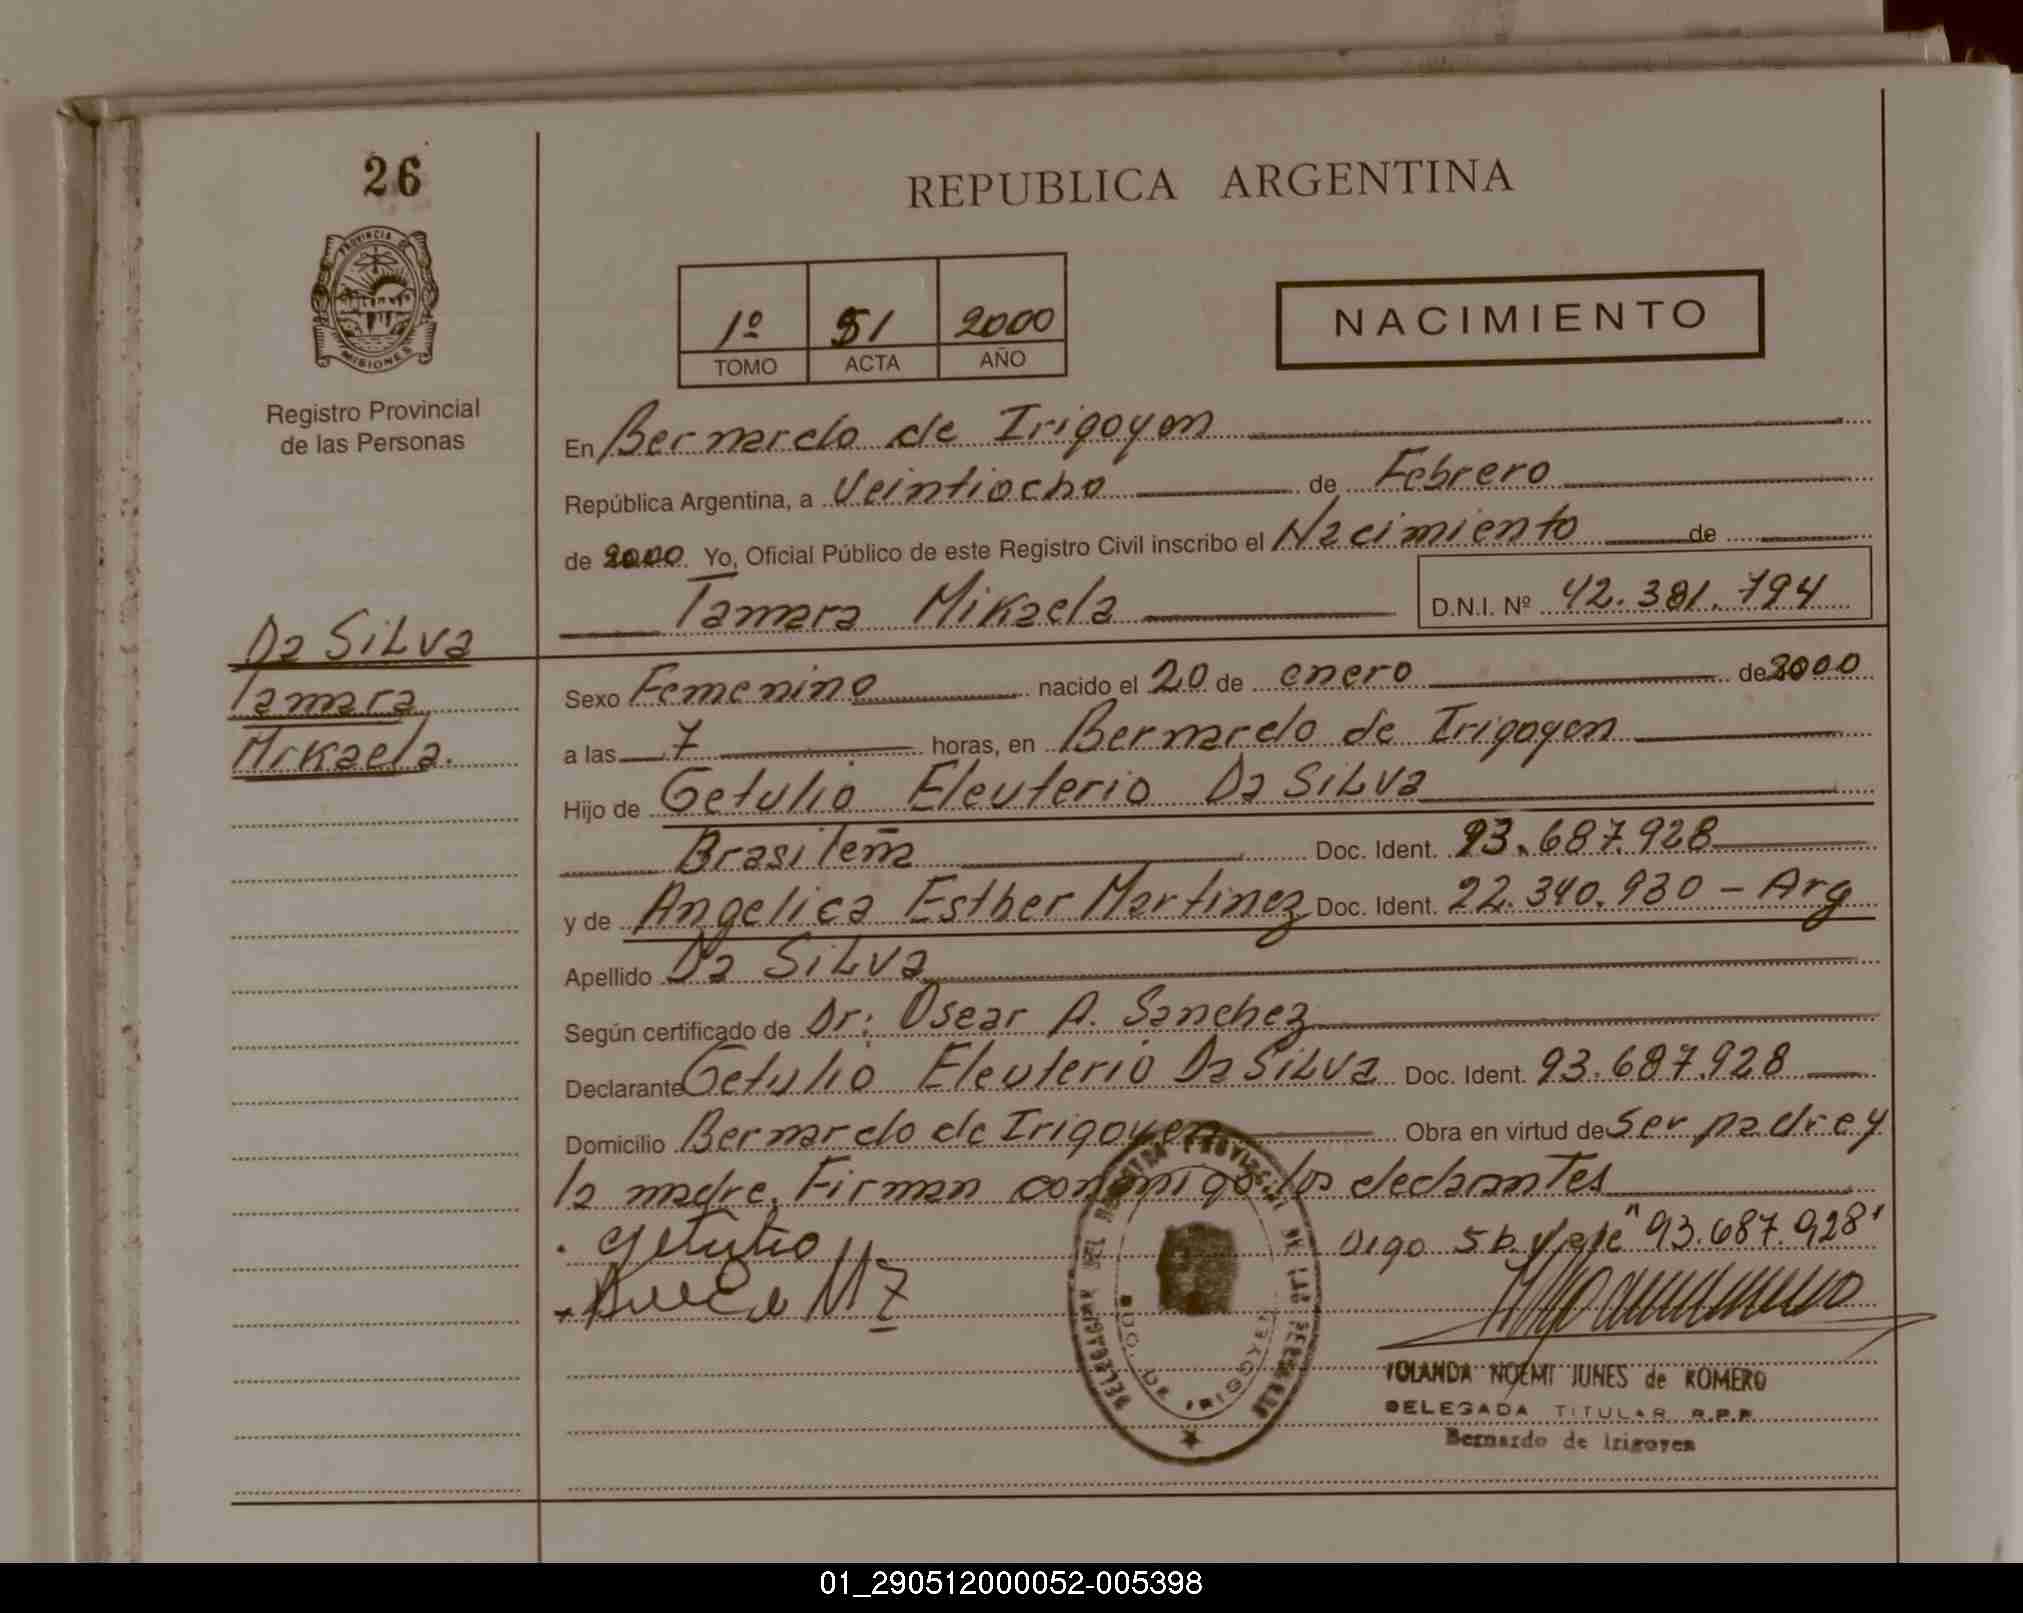 26
PROVINCIA DE
MISIONES
Registro Provincial
de las Personas
REPUBLICA ARGENTINA
1º 51 2000
TOMO ACTA AÑO
NACIMIENTO
En Bernardo de Irigoyen
República Argentina, a Veintiocho de Febrero
de 2000. Yo, Oficial Público de este Registro Civil inscribo el Nacimiento de
Tamara Mikaela D.N.I. Nº 42.381.794
Da Silva
Tamara
Mikaela.
Sexo Femenino nacido el 20 de enero de 2000
a las 7 horas, en Bernardo de Irigoyen
Hijo de Getulio Eleuterio Da Silva
Brasileña Doc. Ident. 93.687.928
y de Angelica Esther Martinez Doc. Ident. 22.340.930 - Arg
Apellido Da Silva
Según certificado de Dr: Oscar A. Sanchez
Declarante Getulio Eleuterio Da Silva Doc. Ident. 93.687.928
Domicilio Bernardo de Irigoyen Obra en virtud de ser padre y
la madre. Firman conmigo los declarantes
getulio Digo sb. "93.687.928"
DELEGACION DEL REGISTRO PROVINCIAL DE LAS PERSONAS
BDO. DE IRIGOYEN
YOLANDA NOEMI JUNES de ROMERO
DELEGADA TITULAR R.P.P.
Bernardo de Irigoyen
01_290512000052-005398